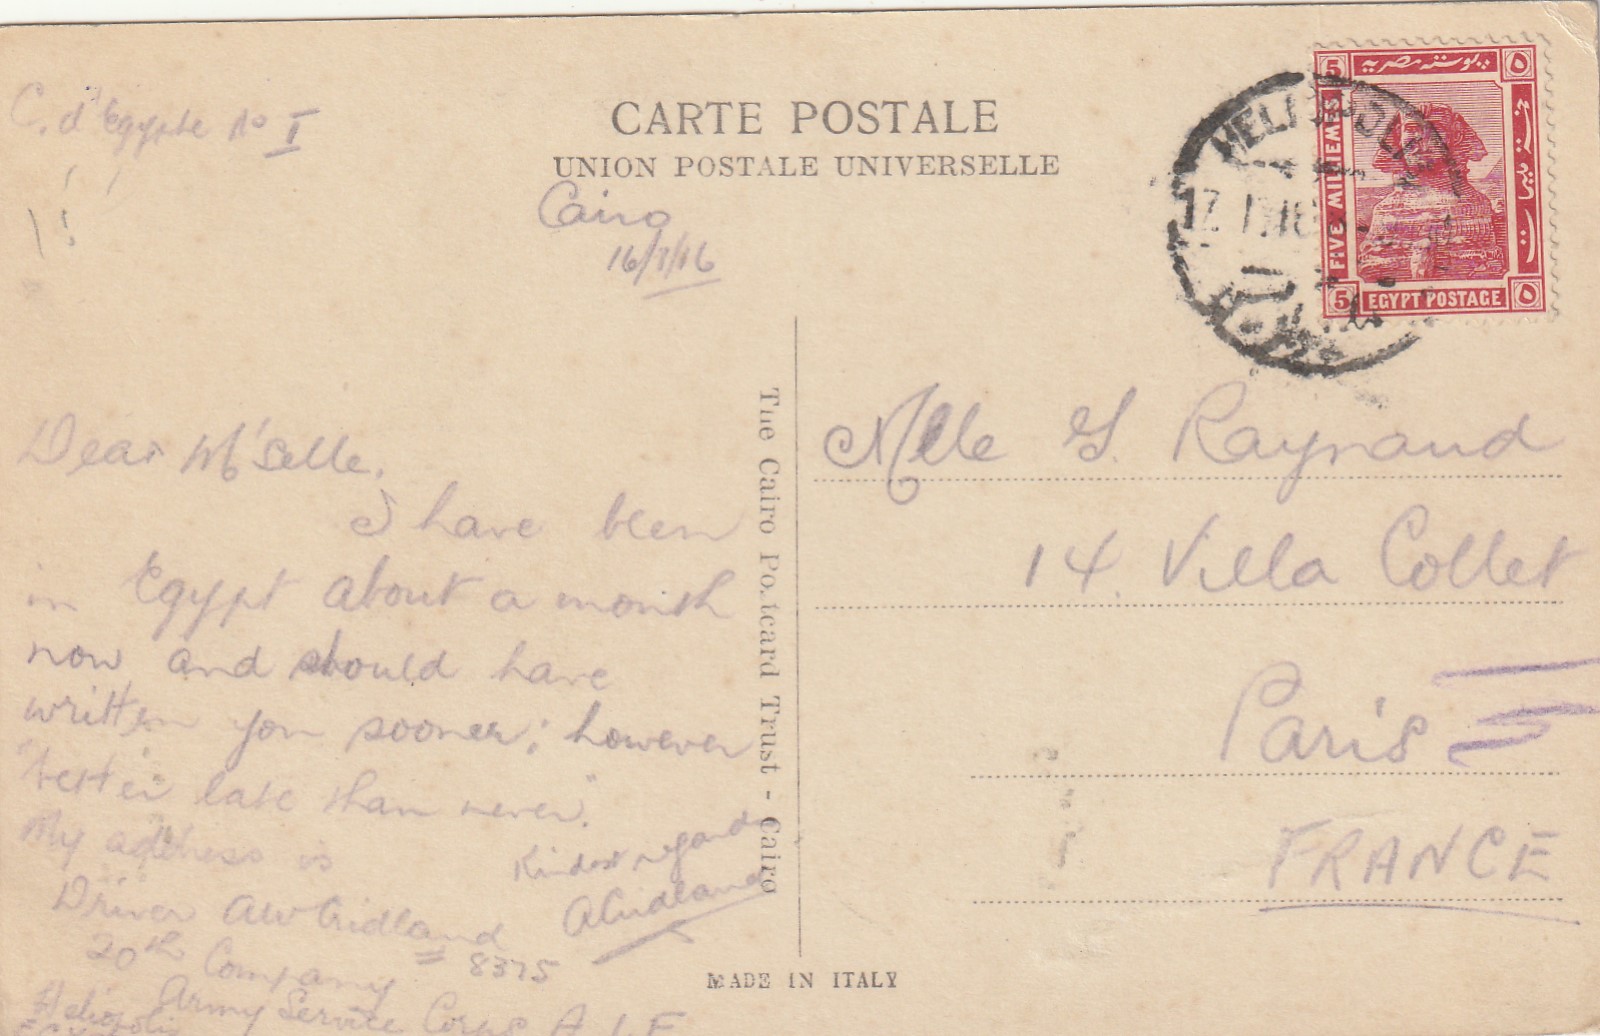 C. d'Egypte No I
CARTE POSTALE
UNION POSTALE UNIVERSELLE
Cairo
16/7/16
Dear M'selle.
I have been
in Egypt about a month
now and should have
written you sooner; however
"better late than never".
My address is
Driver AW
20th Company 8375
Army Service Corps A I F
Heliopolis
Kindest regards
The Cairo Postcard Trust - Cairo
MADE IN ITALY
HELIOPOLIS
بوسته مصرية
5
٥
FIVE MILLIEMES
خمسة مليمات
5 EGYPT POSTAGE ٥
Melle G. Raynaud
14 Villa Collet
Paris
FRANCE